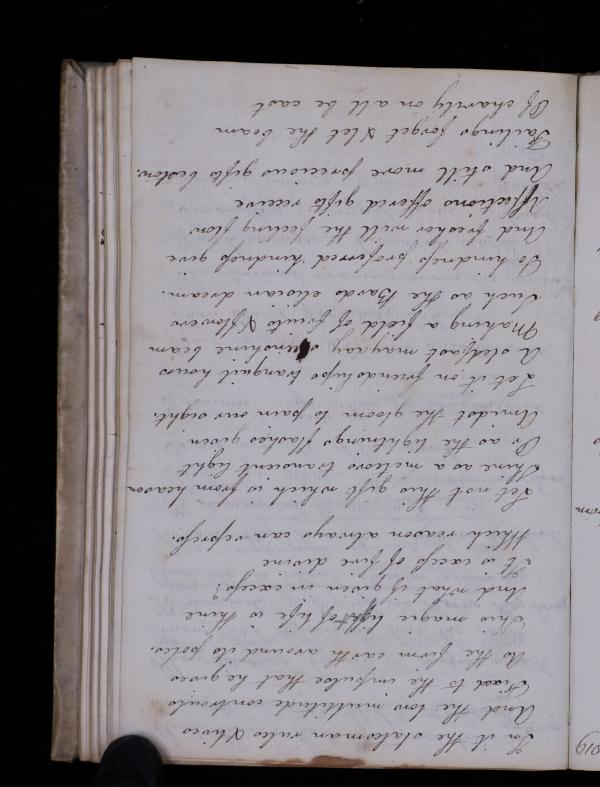 In it the statesman rules & lives
And the low multitude controuls
Fixed to the impulse that he gives
As the firm earth around its poles.
This magic light of life is thine
And what if given in excess?
It is excess of fire divine
Which reason always can repress.
Let not this gift which is from heaven
Shine as a meteors transient light
Or as the lightnings flashes given
Amidst the gloom to pain our sight.
Let it on friendships tranquil hours
A stedfast mayday sunshine beam
Making a field of fruits & flowers
Such as the Bards elisian dream.
To kindness proffered kindness give
And fresher will the feeling flow
Affections offered gifts receive
And still more precious gifts bestow.
Failings forget & let the beam
Of charity on all be cast